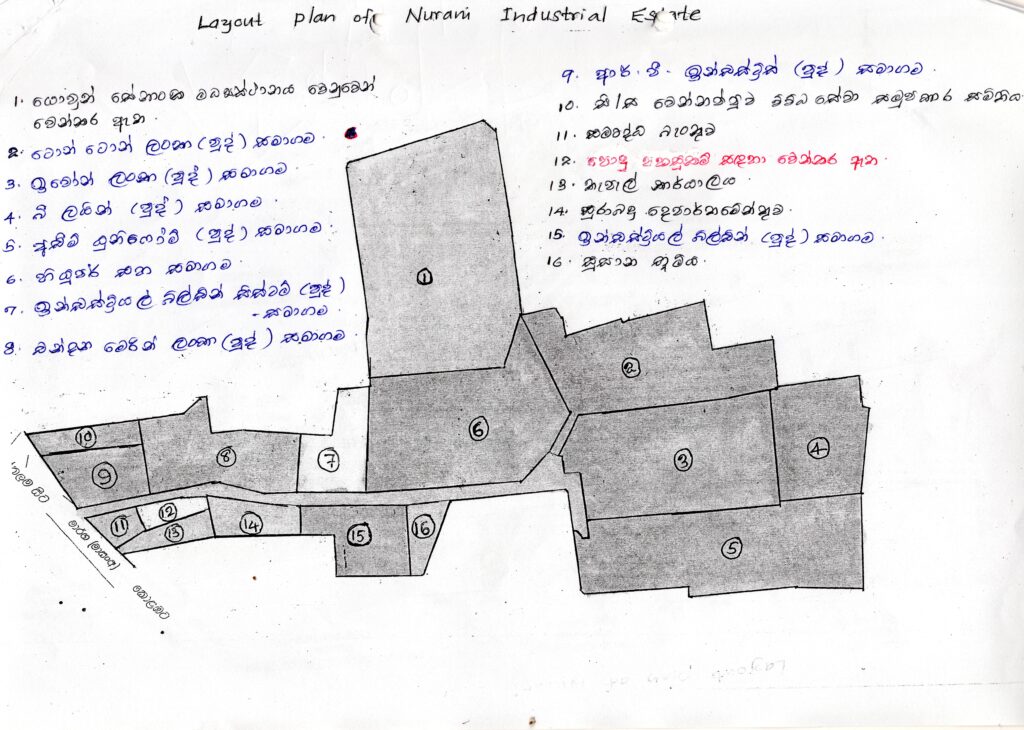 Layout plan of Nurani Industrial Estate
1. යොවුන් සේනාංක මධ්‍යස්ථානය වෙනුවෙන්
වෙන්කර ඇත.
2. ටොන් ටොන් ලංකා (පුද්) සමාගම.
3. ලංකා (පුද්) සමාගම.
4. බී ලයින් (පුද්) සමාගම.
5. යුනිෆෝම් (පුද්) සමාගම.
6. සන සමාගම.
7. ඉන්ඩස්ට්‍රියල් බිල්ඩින් සිස්ටම් (පුද්)
- සමාගම.
8. චන්දන මෙරින් ලංකා (පුද්) සමාගම.
9. ආර්. පී. ඉන්ඩස්ට්‍රීස් (පුද්) සමාගම.
10. සී/ස වෙන්නප්පුව විවිධ සේවා සමුපකාර සමිතිය
11. සමෘද්ධි බැංකුව
12. පොදු පහසුකම් සඳහා වෙන්කර ඇත.
13. තැපැල් කාර්යාලය.
14. සුරාබදු දෙපාර්තමේන්තුව.
15. ඉන්ඩස්ට්‍රියල් බිල්ඩින් (පුද්) සමාගම.
16. සුසාන භූමිය.
1
2
3
4
5
6
7
8
9
10
11
12
13
14
15
16
මාර්ගය
කොළඹට